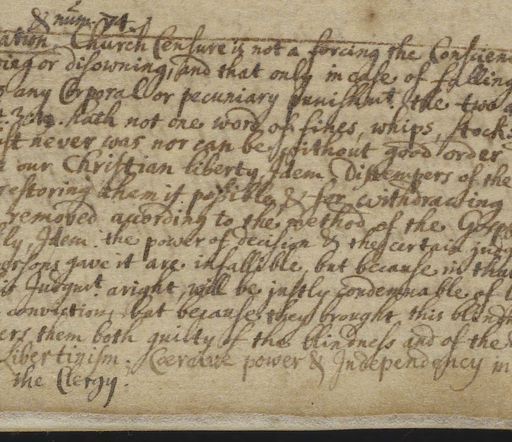 & num. 74.
Church Censure is not a forcing the Conscien
ing or disowning; and that only in case of falling
any Corporal or pecuniary punishmt, the two
hath not one word of fines, whips, stocks
ist never was nor can be without good order
our Christian liberty, Idem. Distempers of the
restoring them if possible, & for withdrawing
removed according to the method of the Gospe
ly, Idem. the power of decision & the certain judg
persons give it are infallible, but because in that
it Judgmt. aright, will be justly condemnable, of
conviction, but because they brought this blindn
ers them both guilty of the blindness and of the
Libertinism. Coercive power & Independency in
the Clergy.